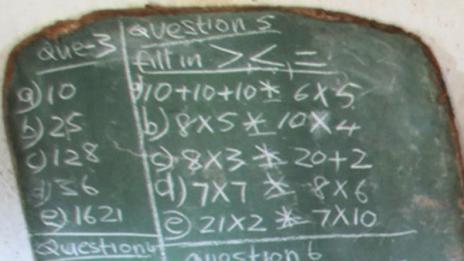 Que-3
a) 10
b) 25
c) 128
d) 36
e) 1621
Question 4
Question 5
fill in >, <, =
a) 10+10+10 * 6×5
b) 8×5 * 10×4
c) 8×3 * 20+2
d) 7×7 * 8×6
e) 21×2 * 7×10
question 6